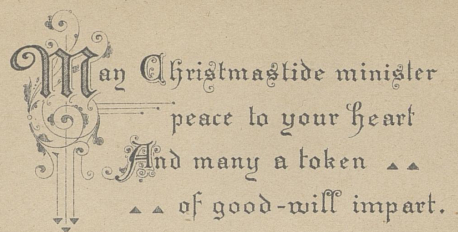 May Christmastide minister
peace to your heart
And many a token
of good-will impart.